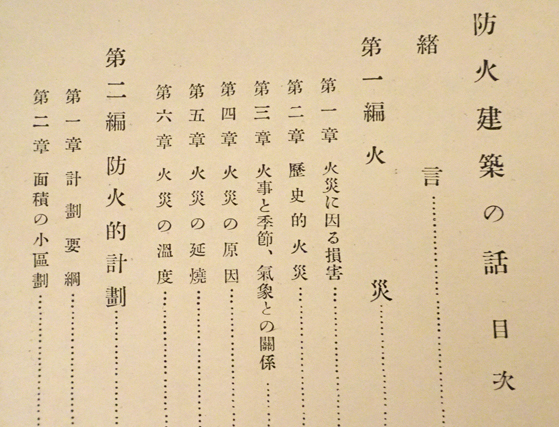 防火建築の話 目次
緒言
第一編 火災
第一章 火災に因る損害
第二章 歷史的火災
第三章 火事と季節、氣象との關係
第四章 火災の原因
第五章 火災の延燒
第六章 火災の溫度
第二編 防火的計劃
第一章 計劃要綱
第二章 面積の小區劃